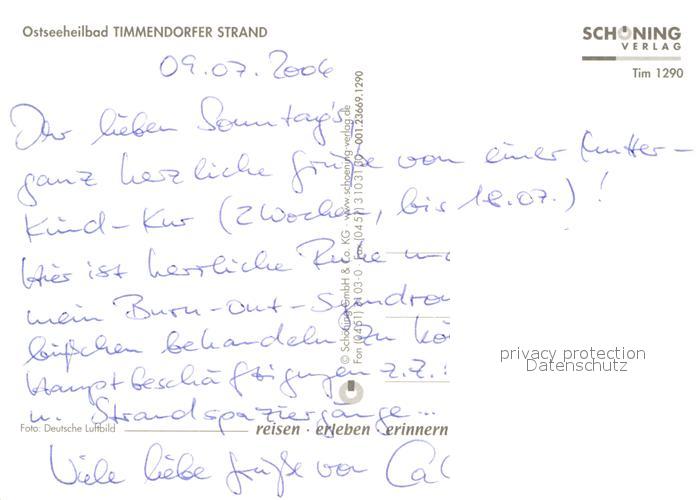 Ostseeheilbad TIMMENDORFER STRAND
SCHÖNING
VERLAG
Tim 1290
09.07.2006
lieben Sonntag's,
ganz herzliche Grüße von einer Mutter-
Kind-Kur (2 Wochen, bis 18.07.)!
Hier ist herrliche Ruhe
mein Burn-out-Syndro
bißchen behandeln zu kö
Hauptbeschäftigungen z.Z.:
u. Strandspaziergänge...
Viele liebe Grüße von
© Schöning GmbH & Co. KG · www.schoening-verlag.de
Fon (0451) 3 10 03-0 · Fax (0451) 3 10 31 50 · 001.23669.1290
privacy protection
Datenschutz
Foto: Deutsche Luftbild
reisen · erleben · erinnern